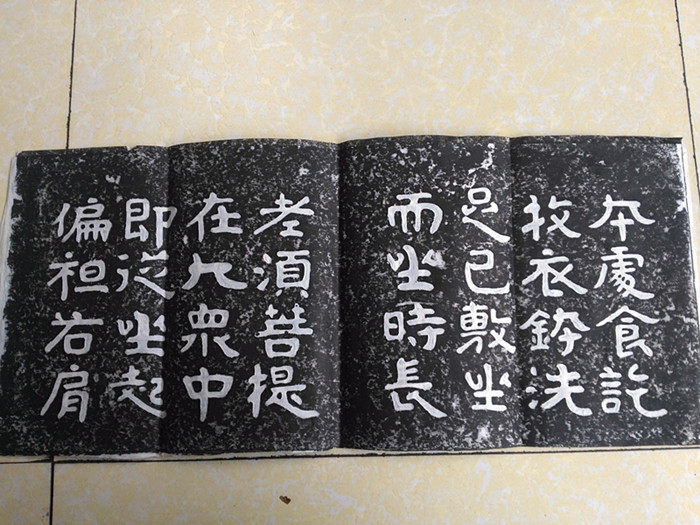 本處食訖
收衣鉢洗
足已敷坐
而坐時長
老須菩提
在大眾中
即從坐起
偏袒右肩